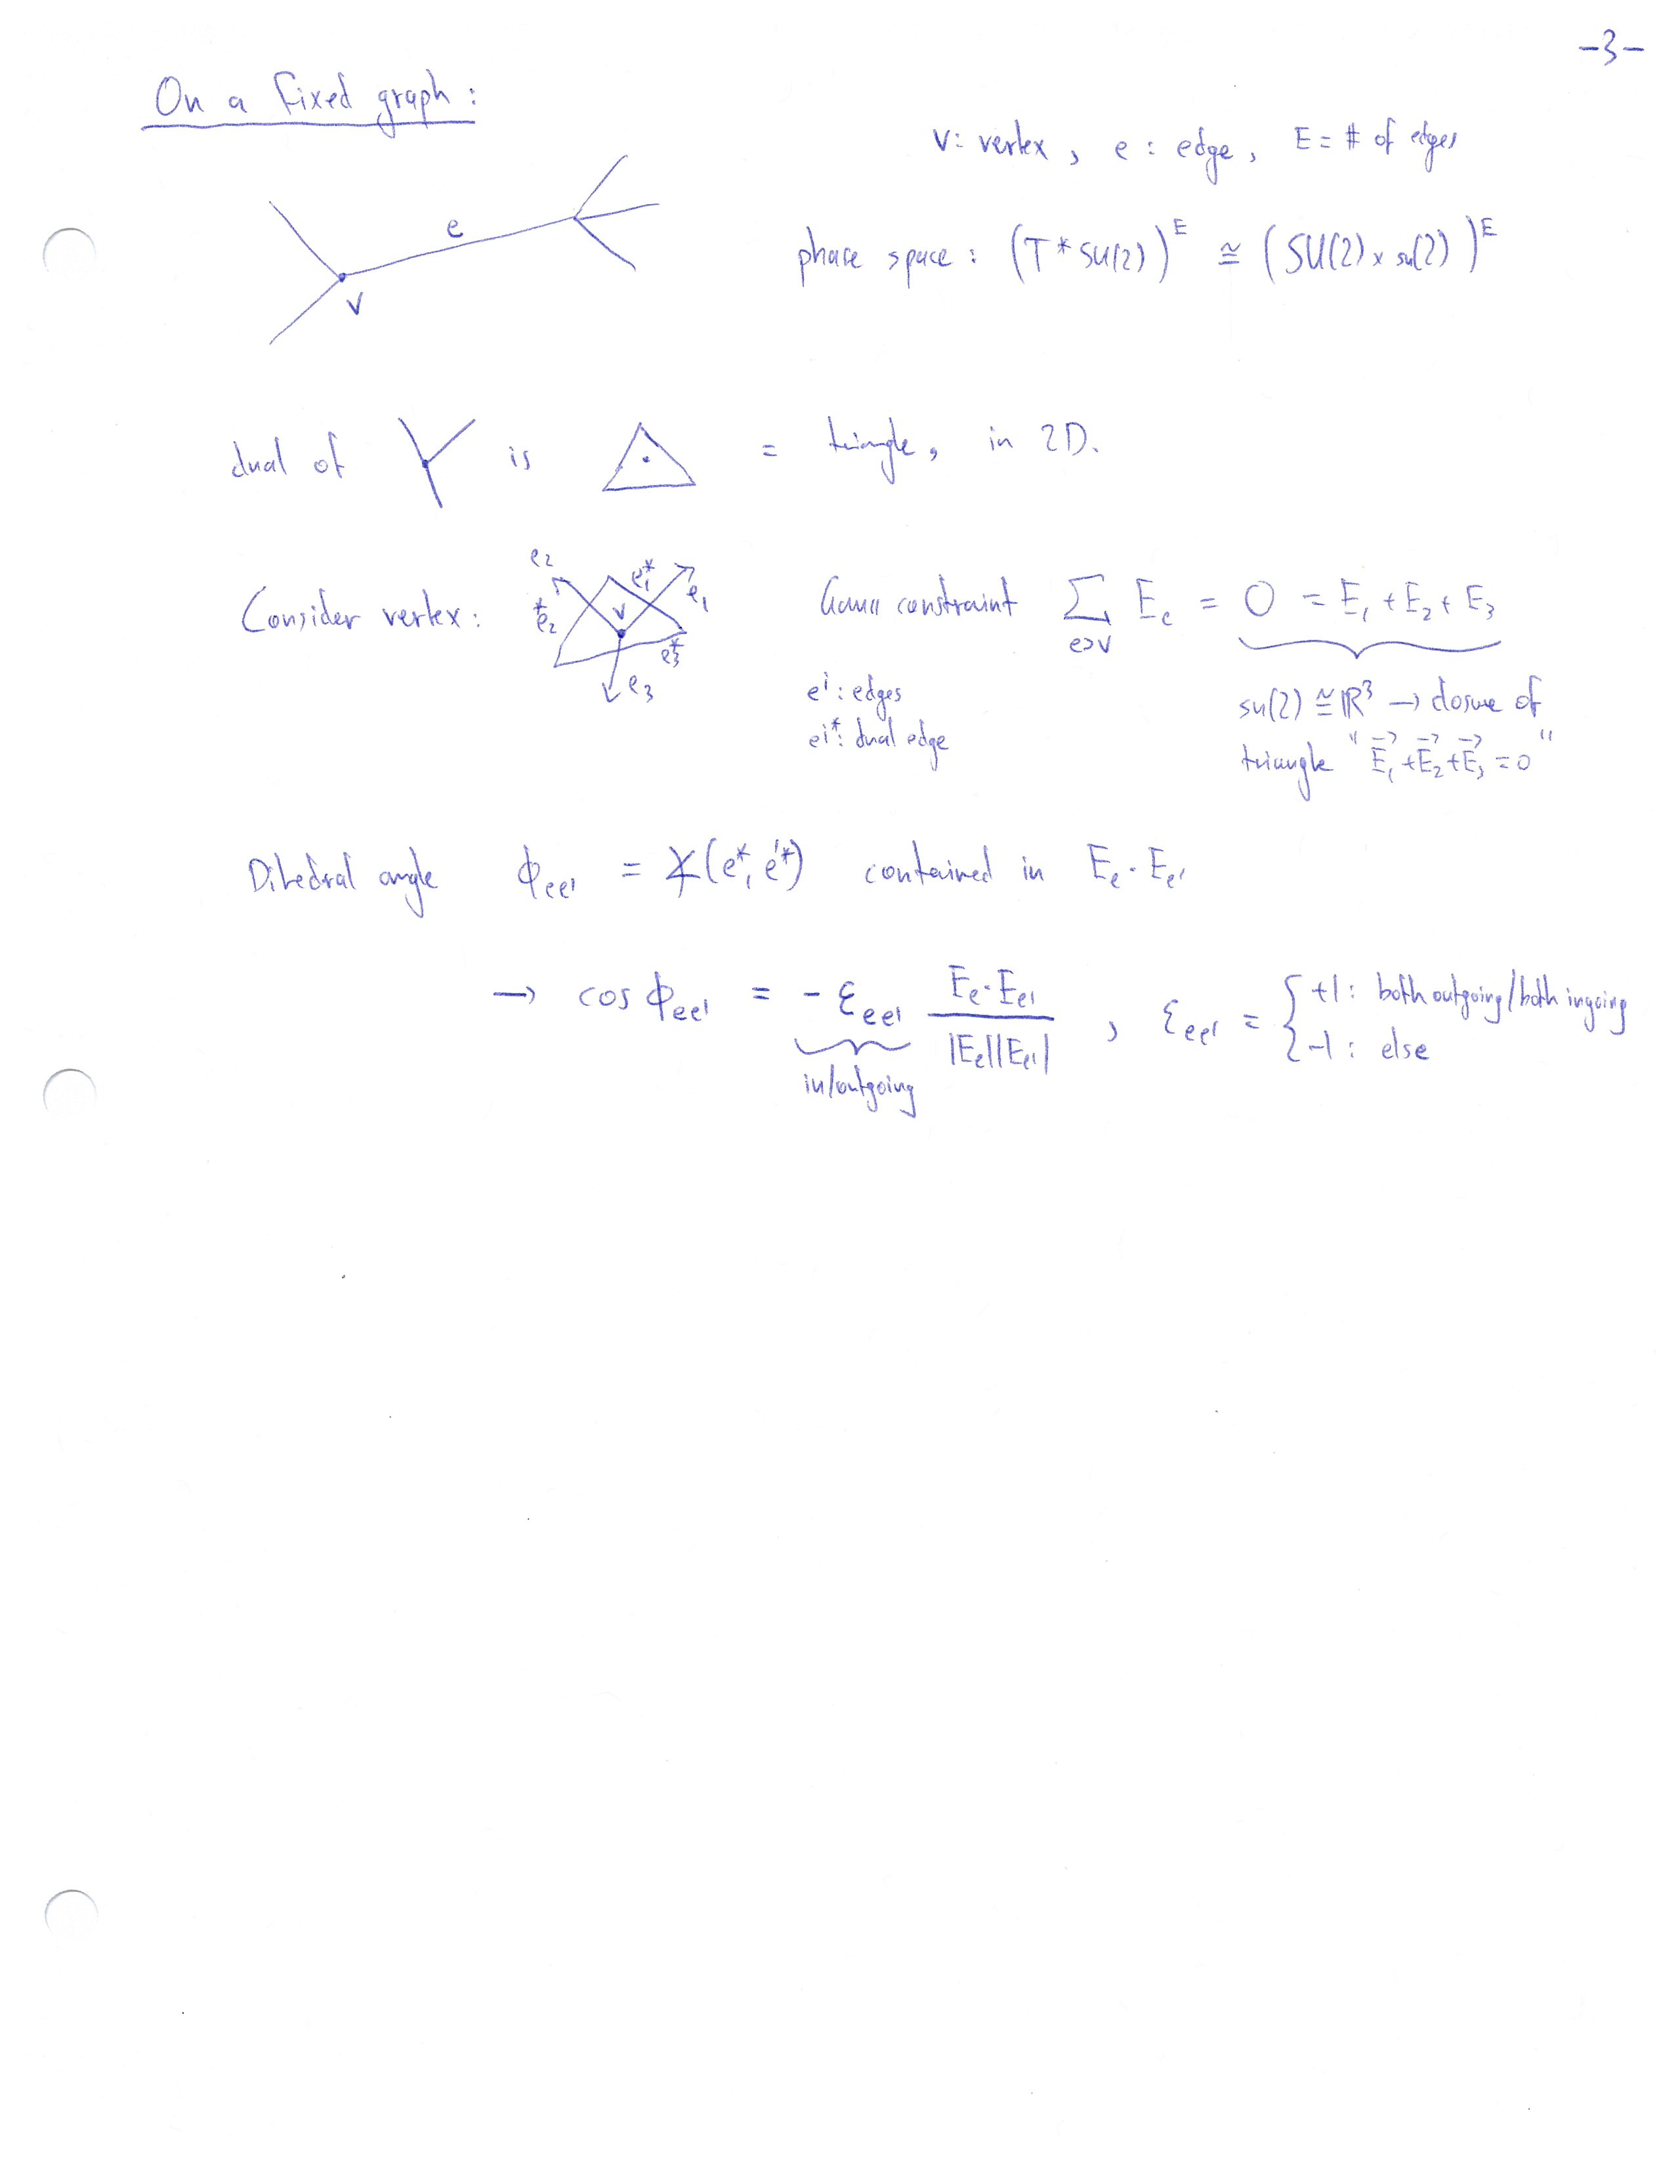 -3-
On a fixed graph:
v: vertex, e: edge, E = # of edges
e
v
phase space: (T*SU(2))^E ≅ (SU(2) × su(2))^E
dual of Y is △ = triangle, in 2D.
Consider vertex:
e₂ e₁* e₁ e₂* v e₃* e₃
Gauss constraint ∑_{e∋v} E_e = 0 = E₁ + E₂ + E₃
eⁱ: edges
eⁱ*: dual edge
su(2) ≅ ℝ³ → closure of
triangle "E⃗₁ + E⃗₂ + E⃗₃ = 0"
Dihedral angle ϕ_{ee'} = ∡(e*, e'*) contained in E_e · E_{e'}
→ cos ϕ_{ee'} = - ε_{ee'} (E_e · E_{e'}) / (|E_e||E_{e'}|) , ε_{ee'} = { +1: both outgoing/both ingoing
-1: else
in/outgoing